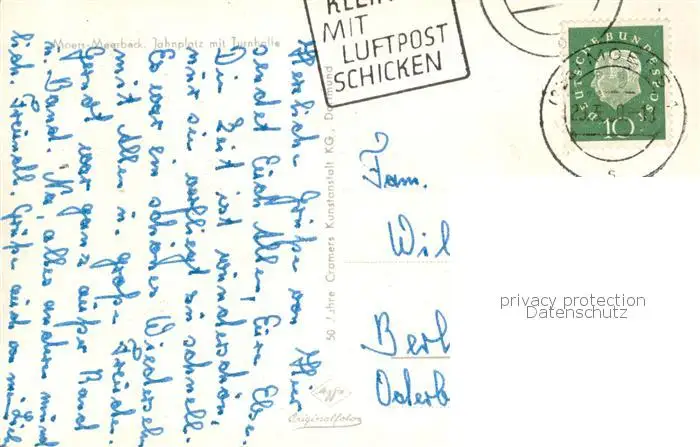 Moers-Meerbeck, Jahnplatz mit Turnhalle
MIT
LUFTPOST
SCHICKEN
DEUTSCHE BUNDESPOST
10
MOERS
Herzliche Grüße von Hier
sendet Euch Allen, Eure
Die Zeit ist wunderschön,
nur sie verfliegt so schnell.
Es war ein schönes Wiedersehn
mit Allen u. große Freude.
war ganz außer Rand
u. Band. Na, alles andere mündlich.
Freundl. Grüße auch von
50 Jahre Cramers Kunstanstalt KG., Dortmund
Agfa
Originalfoto
Fam.
Wil
Berl
Osterb
privacy protection
Datenschutz